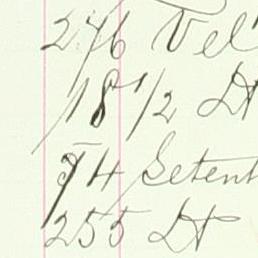 276 Vel
18 1/2 Dt
54 Setent
255 Dt